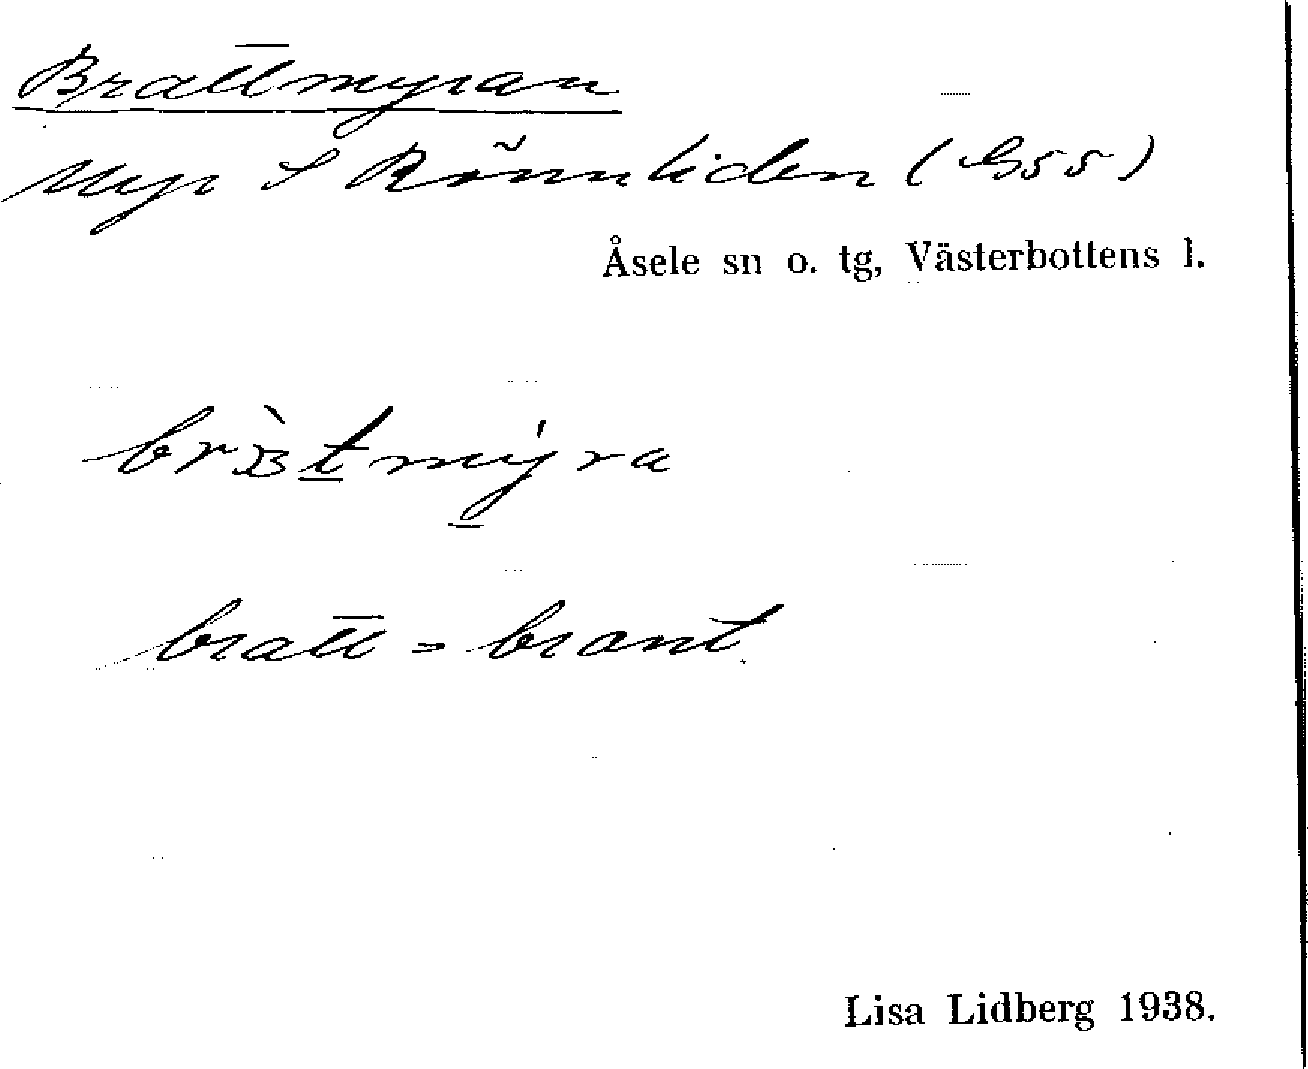 Brattmyran
Myr S Rönnliden (G55)
Åsele sn o. tg, Västerbottens l.
bratt = brant
Lisa Lidberg 1938.